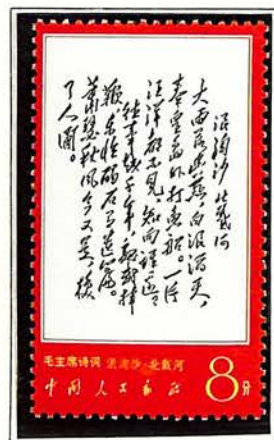 浪淘沙 北戴河
大雨落幽燕，白浪滔天，
秦皇島外打魚船。一片
汪洋都不見，知向誰邊？
往事越千年，魏武揮
鞭，東臨碣石有遺篇。
蕭瑟秋風今又是，換
了人間。
毛主席诗词 浪淘沙·北戴河
中國人民郵政
8分